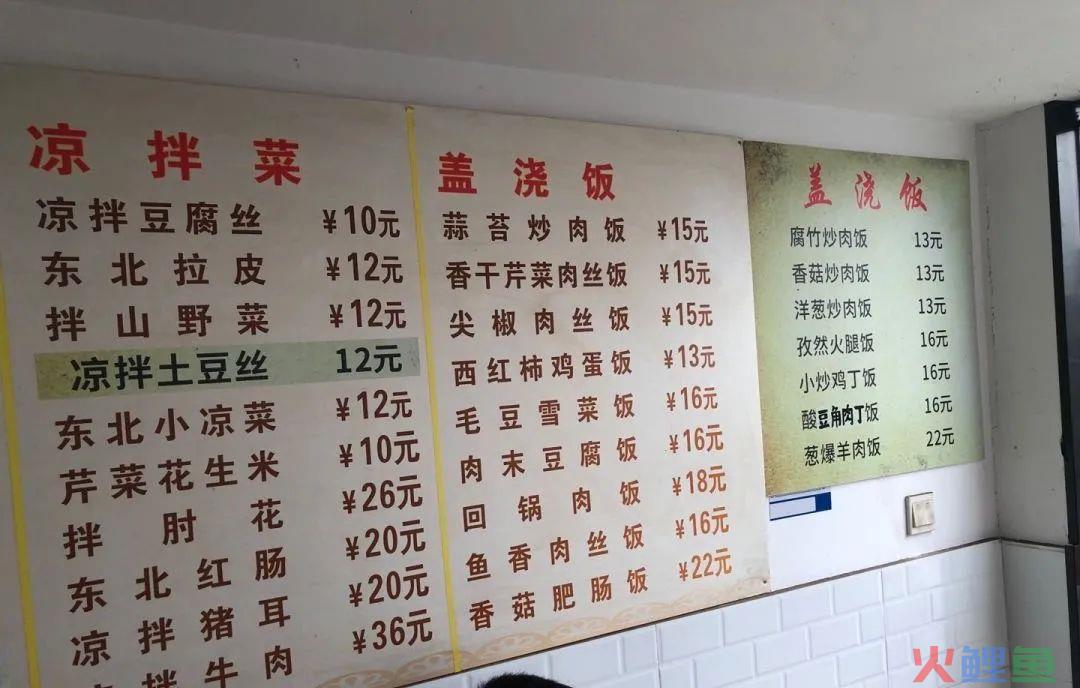 凉拌菜
凉拌豆腐丝 ¥10元
东北拉皮 ¥12元
拌山野菜 ¥12元
凉拌土豆丝 12元
东北小凉菜 ¥12元
芹菜花生米 ¥10元
拌肘花 ¥26元
东北红肠 ¥20元
凉拌猪耳 ¥20元
拌牛肉 ¥36元
盖浇饭
蒜苔炒肉饭 ¥15元
香干芹菜肉丝饭 ¥15元
尖椒肉丝饭 ¥15元
西红柿鸡蛋饭 ¥13元
毛豆雪菜饭 ¥16元
肉末豆腐饭 ¥16元
回锅肉饭 ¥18元
鱼香肉丝饭 ¥16元
香菇肥肠饭 ¥22元
盖浇饭
腐竹炒肉饭 13元
香菇炒肉饭 13元
洋葱炒肉饭 13元
孜然火腿饭 16元
小炒鸡丁饭 16元
酸豆角肉丁饭 16元
葱爆羊肉饭 22元
火鲤鱼